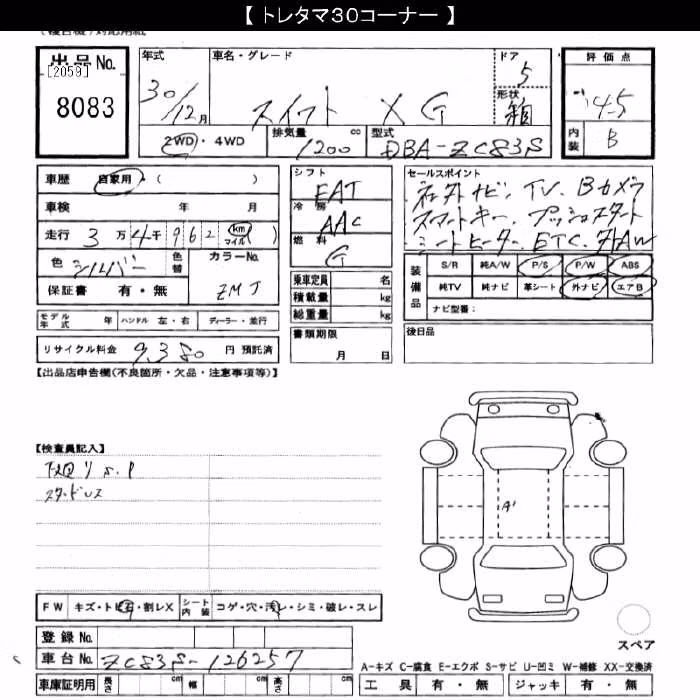 【 トレタマ30コーナー 】
出品No. [2059] 8083
年式 30/12月
車名・グレード スイフト XG
ドア 5
形状 箱
評価点 4.5
内装 B
2WD・4WD
排気量 1200 cc
型式 DBA-ZC83S
車歴 自家用・( )
車検 年 月
走行 3万4千962 km マイル
色 シルバー 色替 カラーNo. ZMJ
保証書 有・無
シフト FAT
冷房 AAC
燃料 G
乗車定員 名
積載量 kg
総重量 kg
書類期限 月 日
セールスポイント
社外ナビ、TV、Bカメラ
スマートキー、プッシュスタート
シートヒーター、ETC、外AW
装備品 S/R 純A/W P/S P/W ABS
純TV 純ナビ 革シート 外ナビ エアB
ナビ型番:
後日品
モデル年式 年 ハンドル 左・右 ディーラー・並行
リサイクル料金 9,380 円 預託済
【出品店申告欄(不良箇所・欠品・注意事項等)】
【検査員記入】
下廻り S.P
スタッドレス
A1
FW キズ・トビ石・割レX シート内装 コゲ・穴・汚レ・シミ・破レ・スレ
登録No.
車台No. ZC83S-126257
車庫証明用 長さ cm 幅 cm 高さ cm
スペア
A-キズ C-腐食 E-エクボ S-サビ U-凹ミ W-補修 XX-交換済
工具 有・無 ジャッキ 有・無